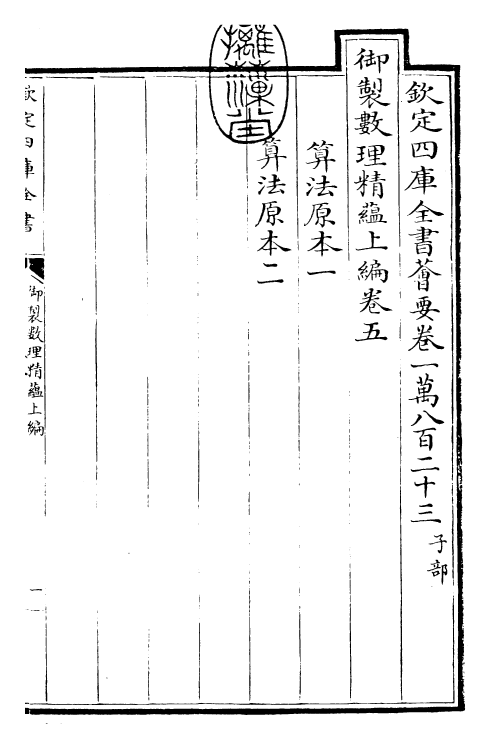 欽定四庫全書薈要卷一萬八百二十三 子部
御製數理精蘊上編卷五
算法原本一
算法原本二
欽定四庫全書
御製數理精蘊上編
一